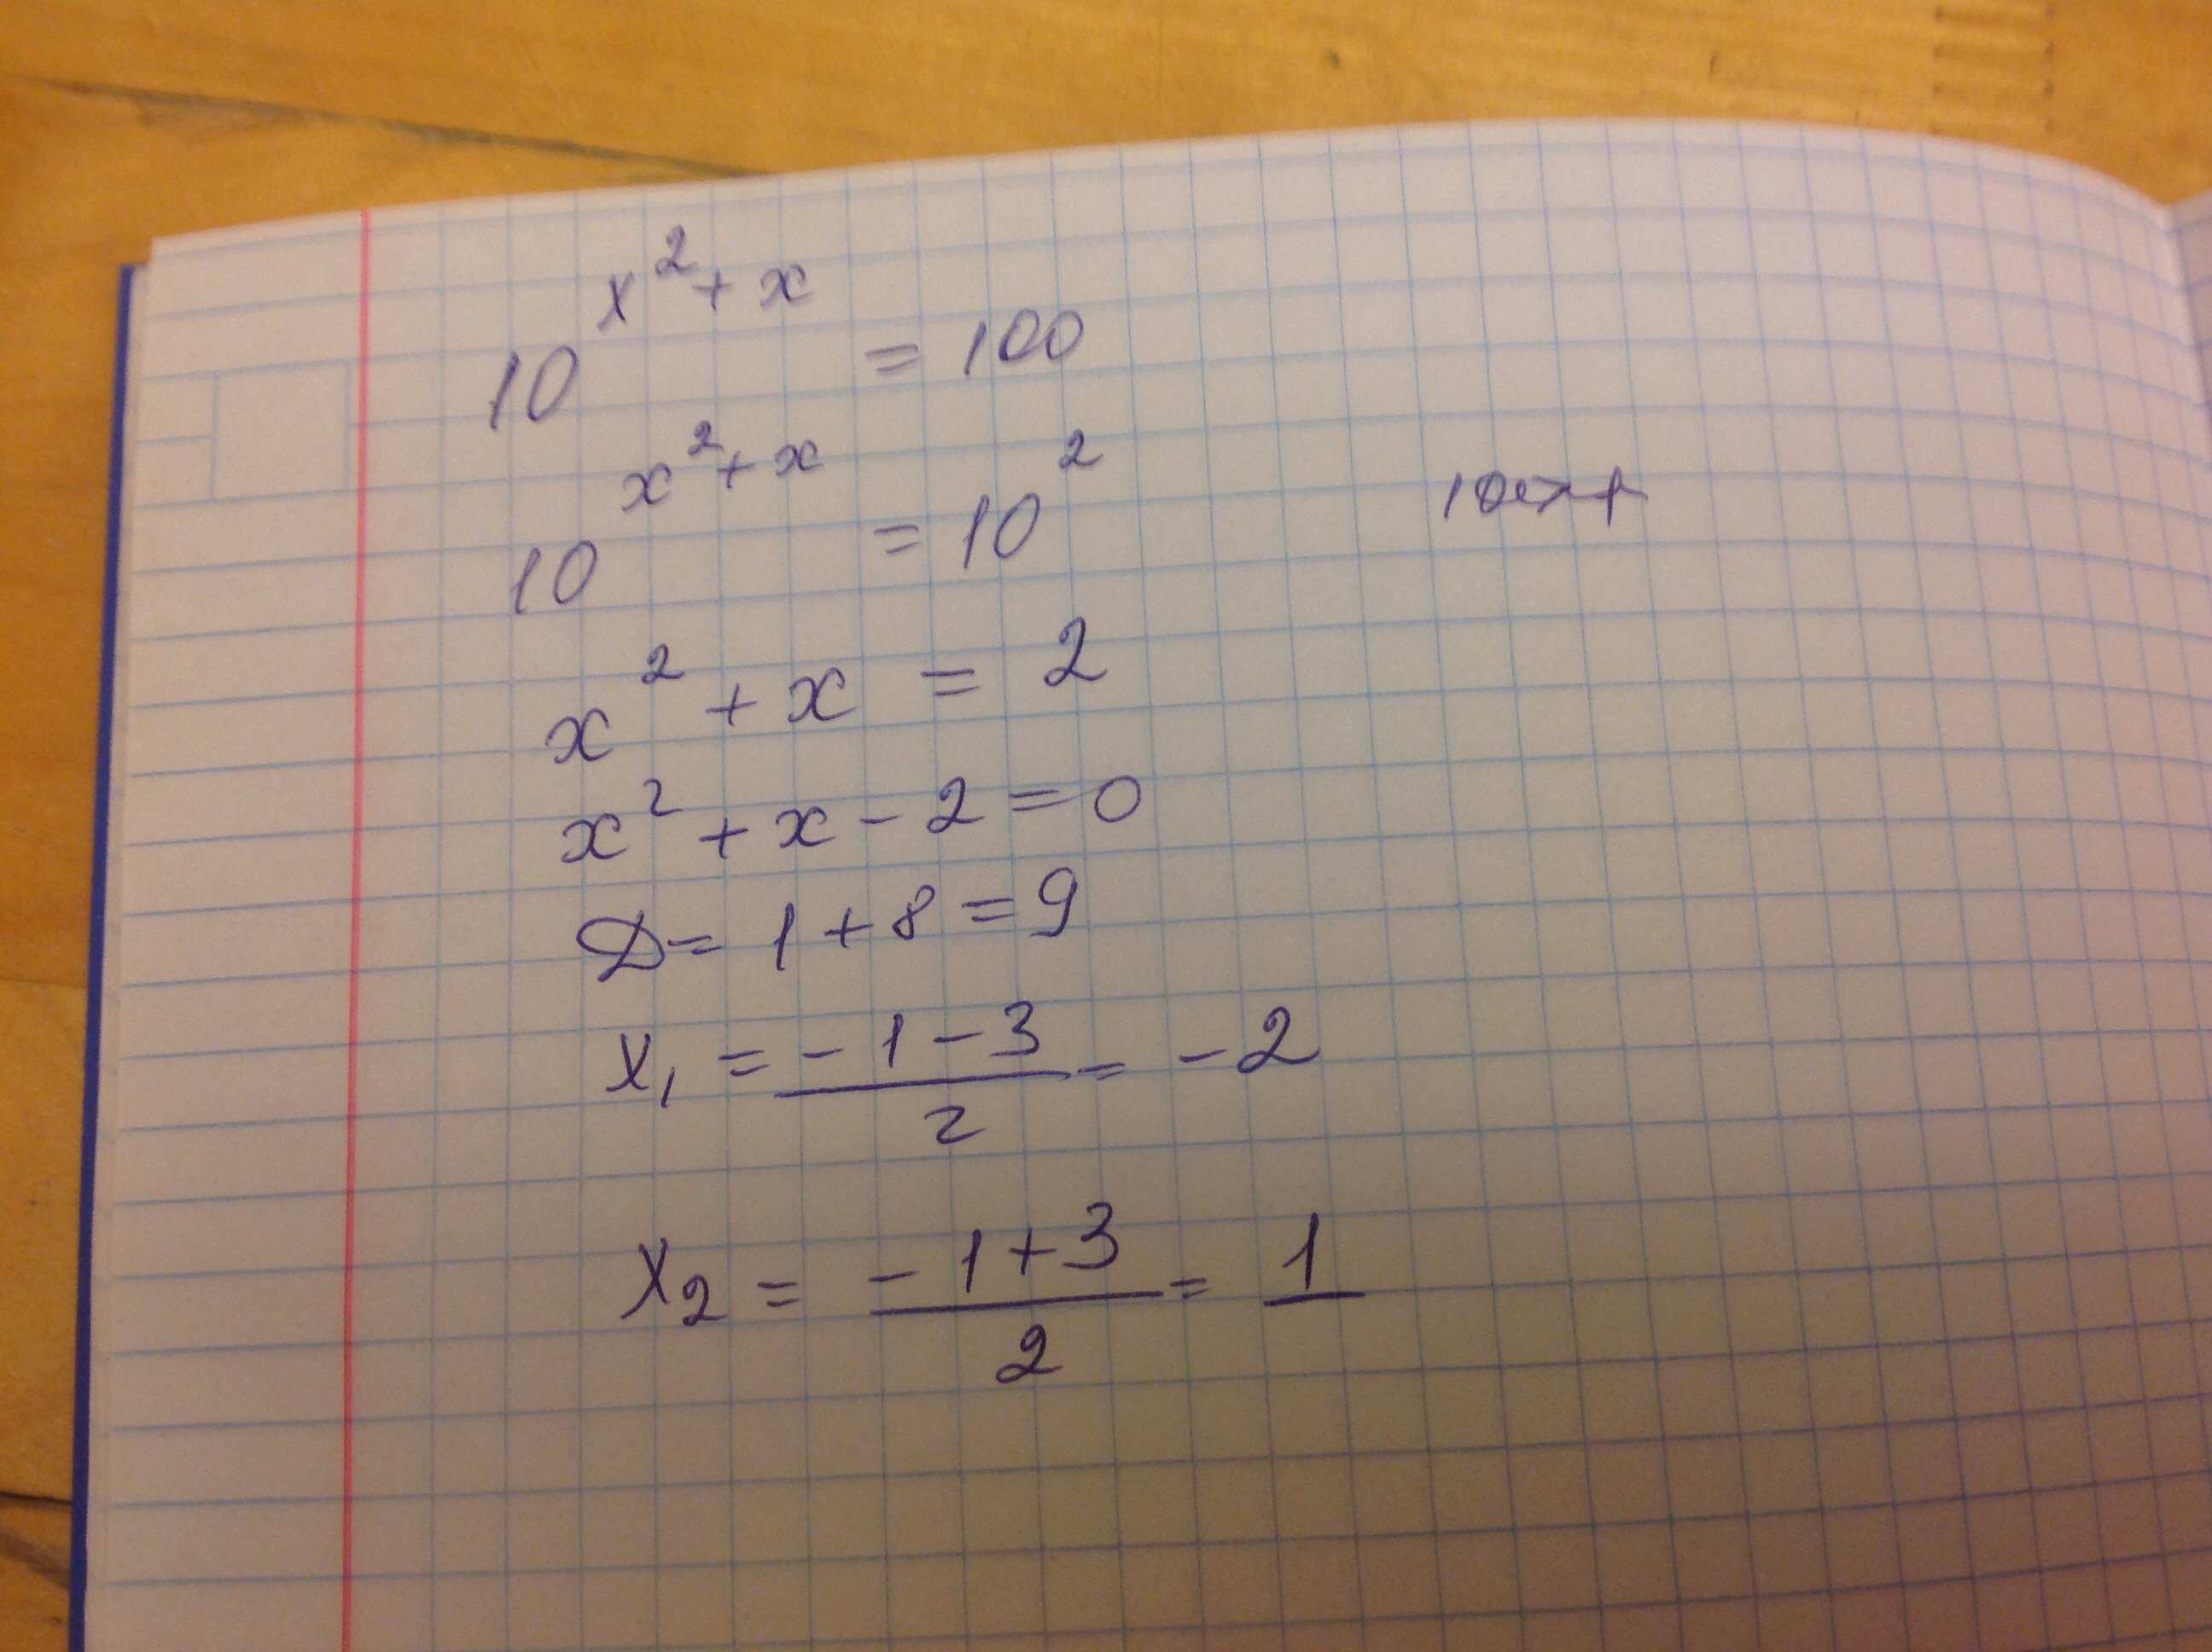 10^{x^2+x} = 100
10^{x^2+x} = 10^2
x^2 + x = 2
x^2 + x - 2 = 0
D = 1 + 8 = 9
x_1 = \frac{-1-3}{2} = -2
x_2 = \frac{-1+3}{2} = 1